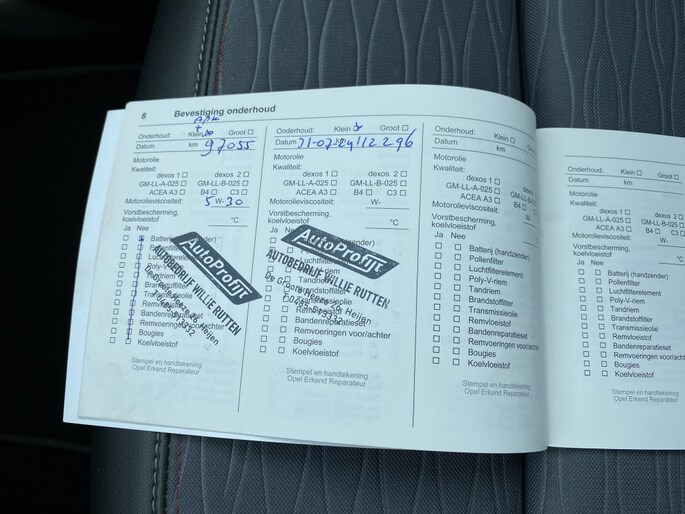 8 Bevestiging onderhoud
APK
+
Onderhoud: Klein Groot
Datum km 97055
Motorolie
Kwaliteit:
dexos 1 dexos 2
GM-LL-A-025 GM-LL-B-025
ACEA A3 B4 C3
Motorolieviscositeit: 5 W- 30
Vorstbescherming, °C
koelvloeistof
Ja Nee
Batterij (handzender)
Pollenfilter
Luchtfilterelement
Poly-V-riem
Tandriem
Brandstoffilter
Transmissieolie
Remvloeistof
Bandenreparatieset
Remvoeringen voor/achter
Bougies
Koelvloeistof
AutoProfijt
AUTOBEDRIJF WILLIE RUTTEN
Heijen
Stempel en handtekening
Opel Erkend Reparateur
Onderhoud: Klein Groot
Datum 11-07-24 112296
Motorolie
Kwaliteit:
dexos 1 dexos 2
GM-LL-A-025 GM-LL-B-025
ACEA A3 B4 C3
Motorolieviscositeit: W-
Vorstbescherming, °C
koelvloeistof
Ja Nee
AutoProfijt
AUTOBEDRIJF WILLIE RUTTEN
Heijen
Tandriem
Brandstoffilter
Transmissieolie
Remvloeistof
Bandenreparatieset
Remvoeringen voor/achter
Bougies
Koelvloeistof
Stempel en handtekening
Opel Erkend Reparateur
Onderhoud: Klein
Datum km
Motorolie
Kwaliteit:
dexos 1
GM-LL-A-025
ACEA A3 B4
Motorolieviscositeit:
Vorstbescherming,
koelvloeistof
Ja Nee
Batterij (handzender)
Pollenfilter
Luchtfilterelement
Poly-V-riem
Tandriem
Brandstoffilter
Transmissieolie
Remvloeistof
Bandenreparatieset
Remvoeringen voor/achter
Bougies
Koelvloeistof
Stempel en handtekening
Opel Erkend Reparateur
Onderhoud: Klein
Datum km
Motorolie
Kwaliteit:
dexos 1
GM-LL-A-025
ACEA A3 B4
Motorolieviscositeit: W-
Vorstbescherming,
koelvloeistof
Ja Nee
Batterij (handzender)
Pollenfilter
Luchtfilterelement
Poly-V-riem
Tandriem
Brandstoffilter
Transmissieolie
Remvloeistof
Bandenreparatieset
Remvoeringen voor/achter
Bougies
Koelvloeistof
Stempel en handtekening
Opel Erkend Reparateur